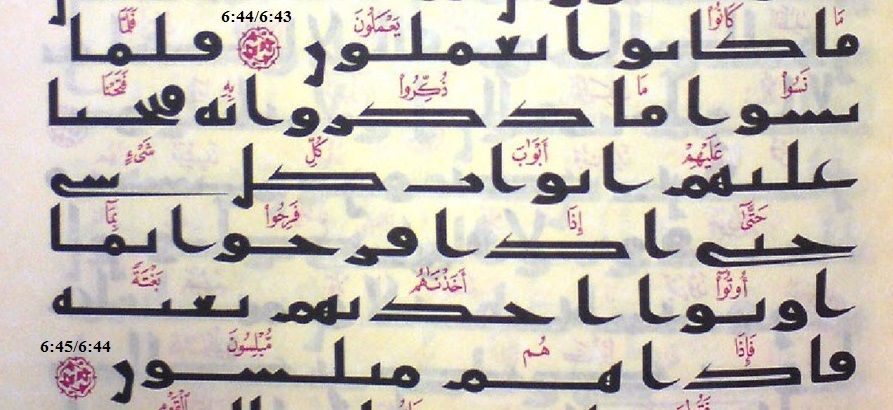 6:44/6:43
مَا كَانُوا۟ يَعْمَلُونَ فَلَمَّا
ما كانوا يعملون فلما
نَسُوا۟ مَا ذُكِّرُوا۟ بِهِۦ فَتَحْنَا
نسوا ما ذكروا به فتحنا
عَلَيْهِمْ أَبْوَٰبَ كُلِّ شَىْءٍ
عليهم ابوب كل شى
حَتَّىٰٓ إِذَا فَرِحُوا۟ بِمَآ
حتى اذا فرحوا بما
أُوتُوٓا۟ أَخَذْنَٰهُم بَغْتَةً
اوتوا اخذنهم بغته
6:45/6:44
فَإِذَا هُم مُّبْلِسُونَ
فاذا هم مبلسون